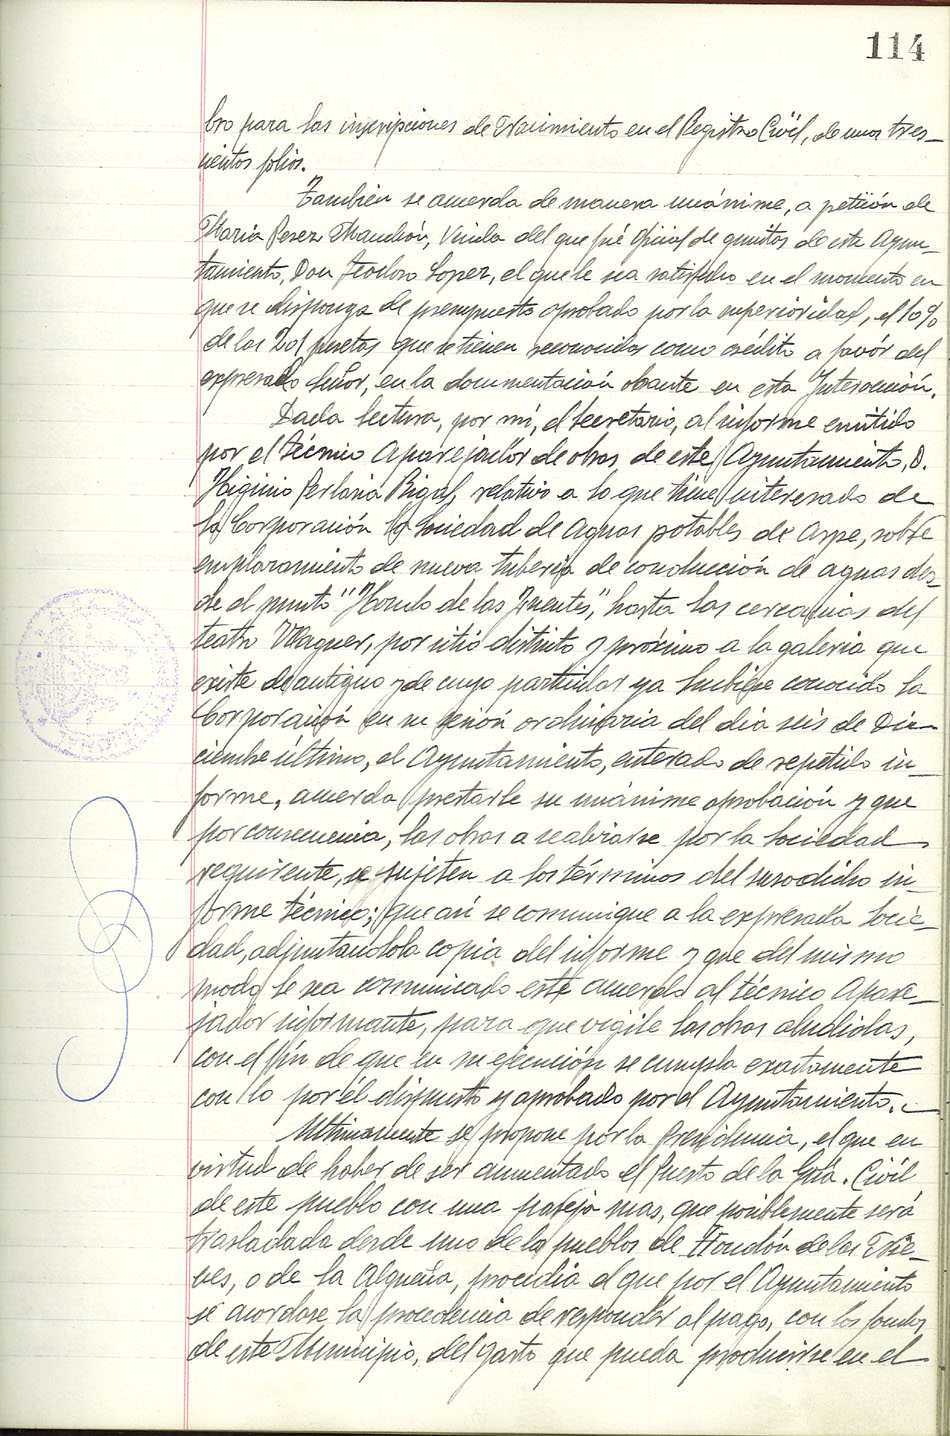 114
bro para las inscripciones de Nacimiento en el Registro Civil, de unos tres-
cientos folios.
Tambien se acuerda de manera unánime, a petición de
Maria Perez Manchón, Viuda del que fué Oficial de quintas de este Ayun-
tamiento, Don Teodoro Lopez, el que le sea satisfecho en el momento en
que se disponga de presupuesto aprobado por la superioridad, el 10%
de las 201 pesetas que se tienen reconocidas como crédito a favór del
expresado Señor, en la documentación obrante en esta Intervención.
Dada lectura, por mí, el Secretario, al informe emitido
por el técnico Aparejador de obras de este Ayuntamiento, D.
Higinio Perlasia Rigal, relativo a lo que tiene interesado de
la Corporación la Sociedad de Aguas potables de Aspe, sobre
emplazamiento de nueva tuberia de conducción de aguas des-
de el punto "Hondo de las Fuentes", hasta las cercanias del
teatro Wagner, por sitio distinto y próximo a la galeria que
existe de antiguo y de cuyo particular ya hubiese conocido la
Corporación en su sesión ordinaria del dia seis de Di-
ciembre último, el Ayuntamiento, enterado de repetido in-
forme, acuerda prestarle su unánime aprobación y que
por consecuencia, las obras a realizarse por la Sociedad
requirente, se sujeten a los términos del susodicho in-
forme técnico; que así se comunique a la expresada Socie-
dad, adjuntandola copia del informe y que del mismo
modo le sea comunicado este acuerdo al técnico Apare-
jador informante, para que vigile las obras aludidas,
con el fín de que en su ejecución se cumpla exactamente
con lo por él dispuesto y aprobado por el Ayuntamiento.
Ultimamente se propone por la Presidencia, el que en
virtud de haber de ser aumentado el Puesto de la Gria. Civil
de este pueblo con una pareja mas, que posiblemente será
trasladada desde uno de los pueblos de Hondón de las Nie-
ves, o de la Algueña, procedia el que por el Ayuntamiento
se acordase la procedencia de responder al pago, con los fondos
de este Municipio, del gasto que pueda producirse en el